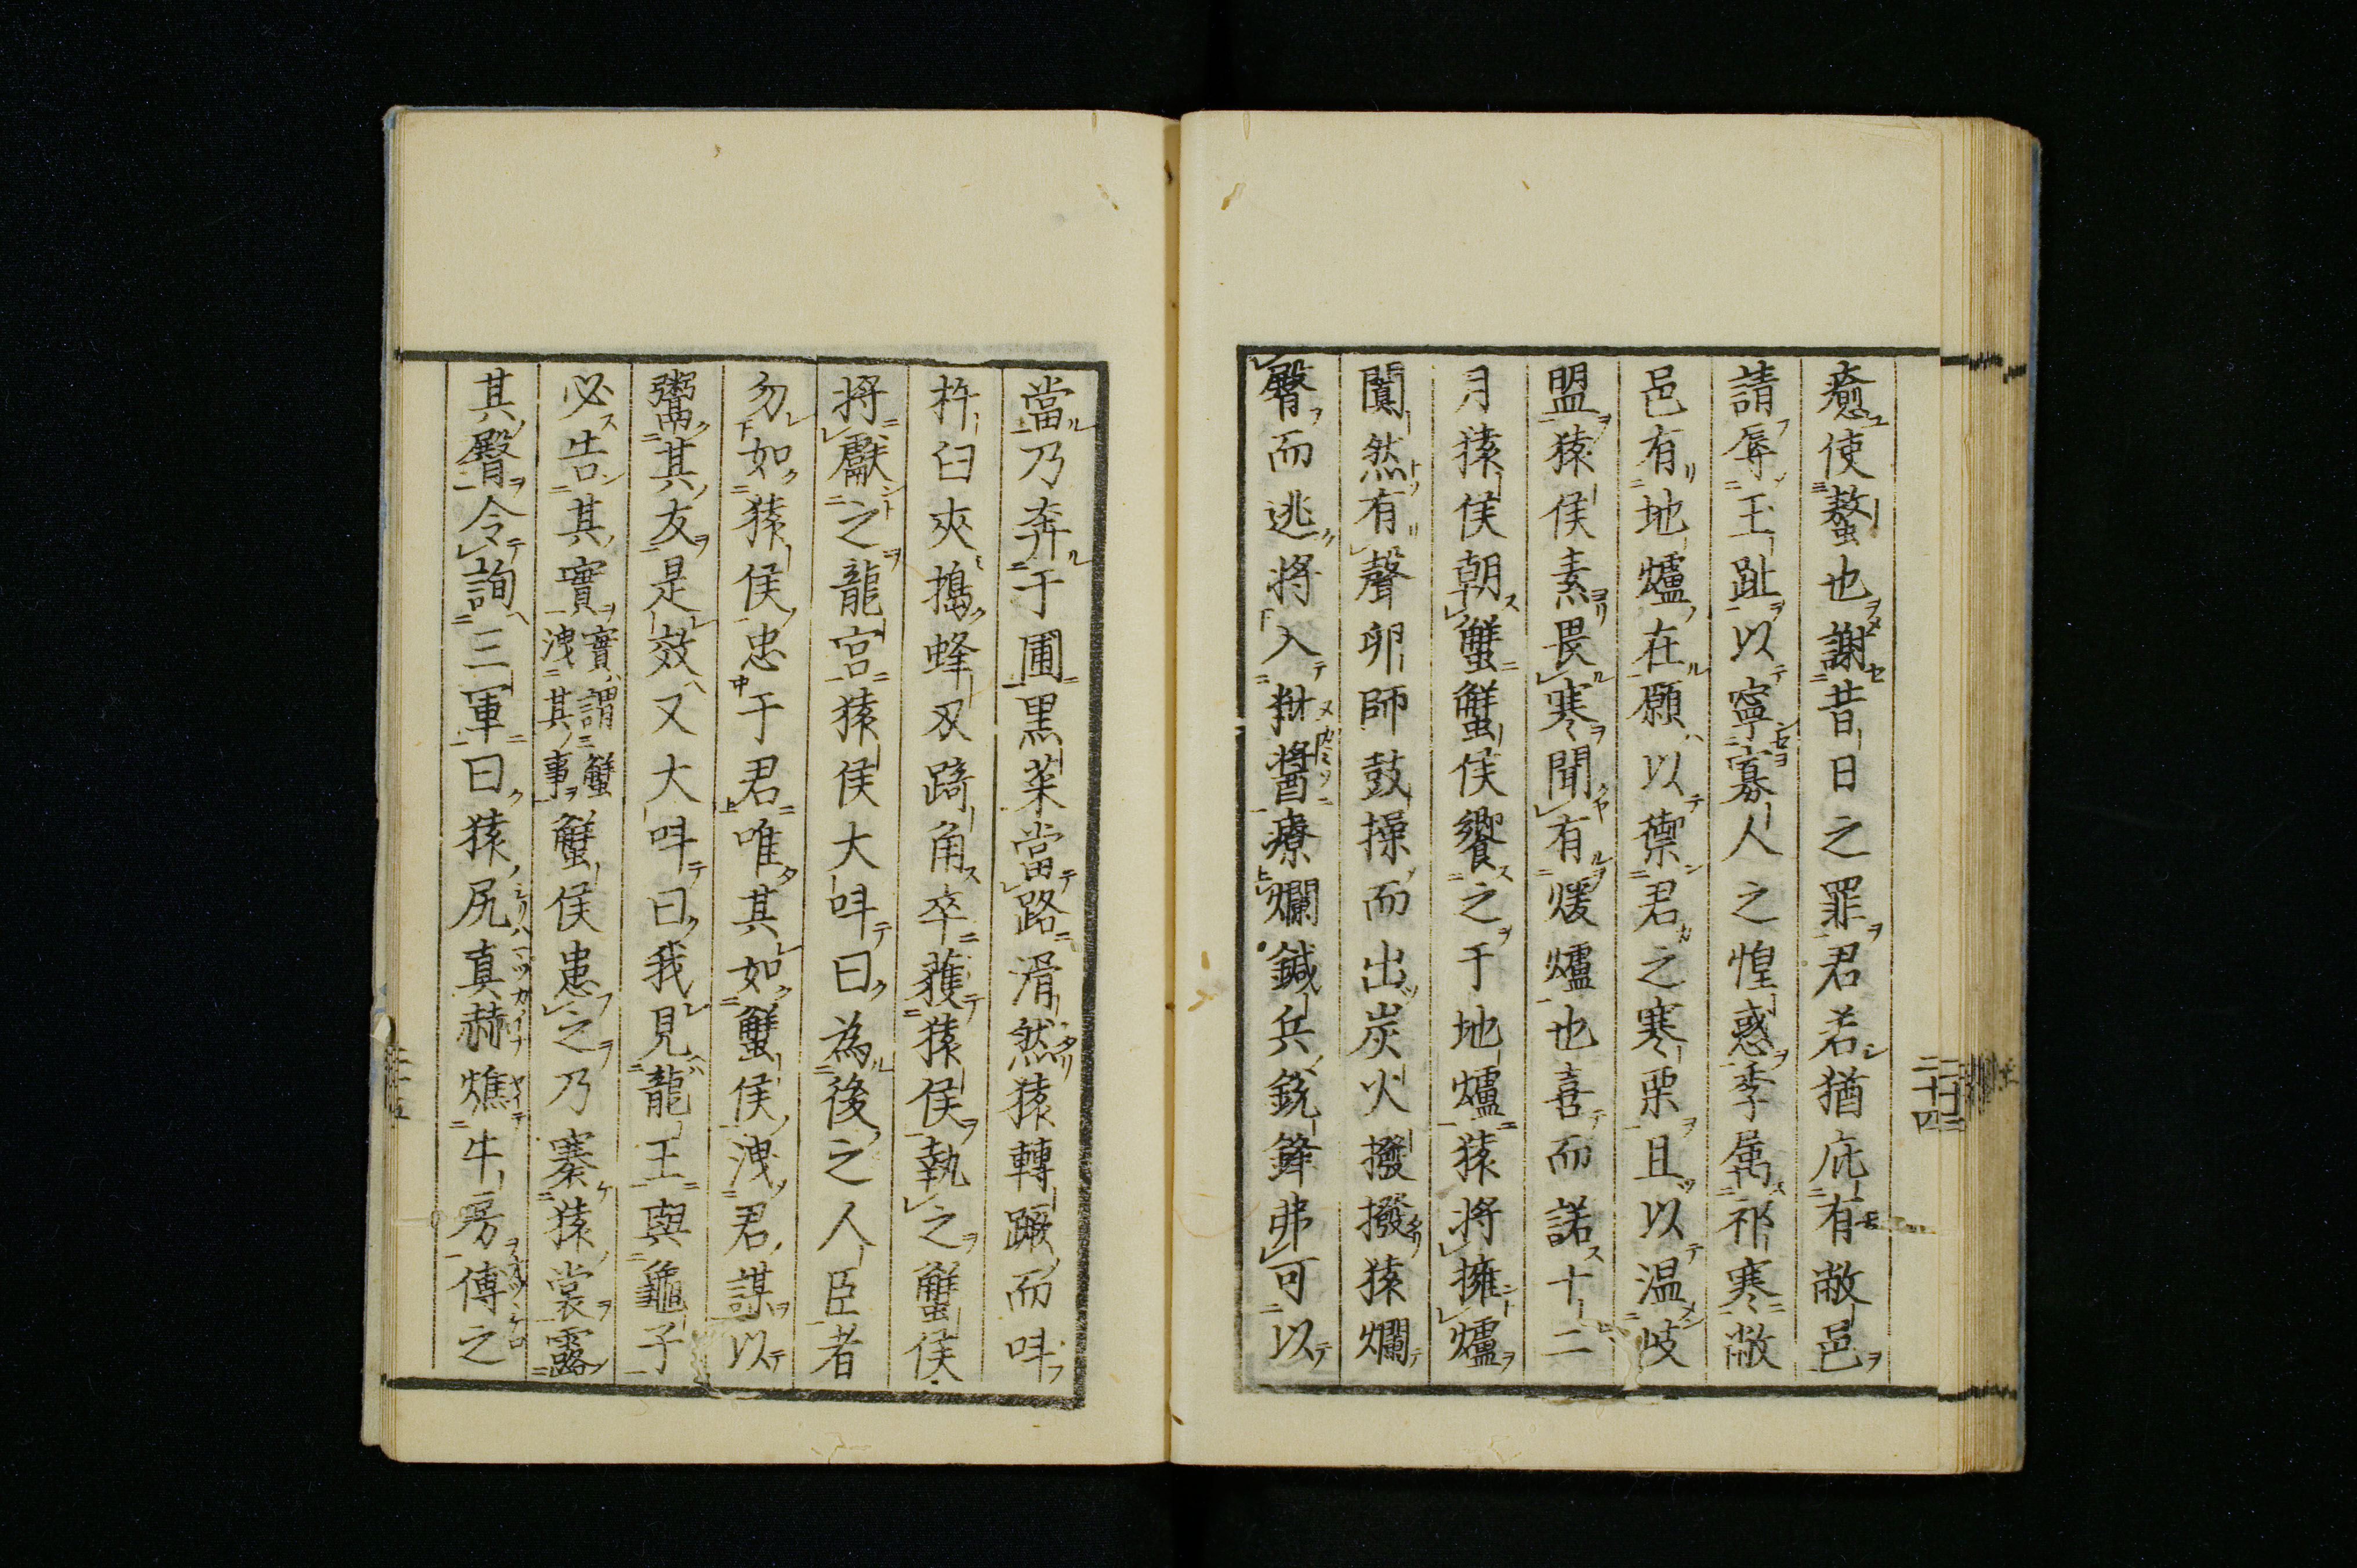 癒使螯也謝昔日之罪君若猶庇有敝邑
請辱王趾以寧寡人之惶惑季属祁寒敝
邑有地爐在願以禦君之寒栗且以温岐
盟猿侯素畏寒聞有煖爐也喜而諾十二
月猿侯朝蟹蟹侯饗之于地爐猿將擁爐
闐然有聲卵師鼓操而出炭火撥撥猿爛
臀而逃將入醬療爛鍼兵銳鋒弗可以
二十四
當乃奔于圃黒菜當路滑然猿轉蹶而呌
杵臼夾搗蜂双踦角卒獲猿侯執之蟹侯
将獻之龍宮猿侯大呌曰為後之人臣者
勿如猿侯忠于君唯其如蟹侯洩君謀以
鬻其友是效又大呌曰我見龍王與龜子
必告其實實謂蟹洩其事蟹侯患之乃褰猿裳露
其臀令詢三軍曰猿尻真赫燋牛蒡傅之